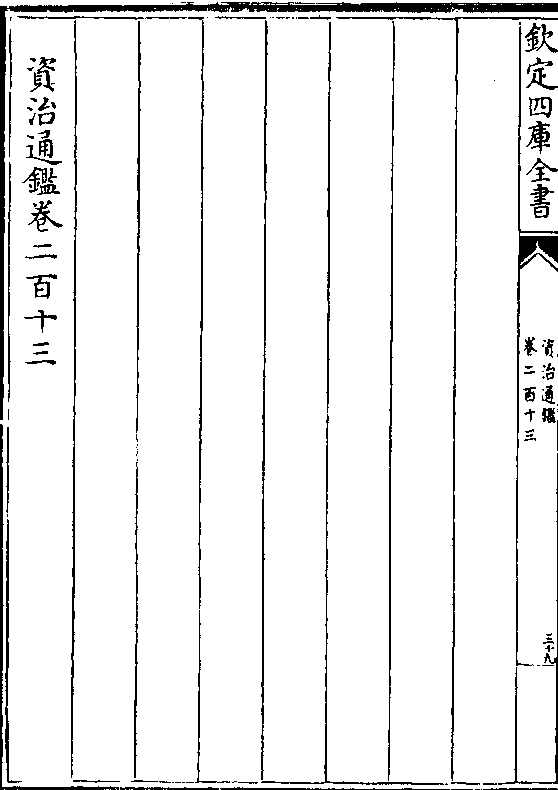 欽定四庫全書
資治通鑑
卷二百十三
三十九
資治通鑑卷二百十三